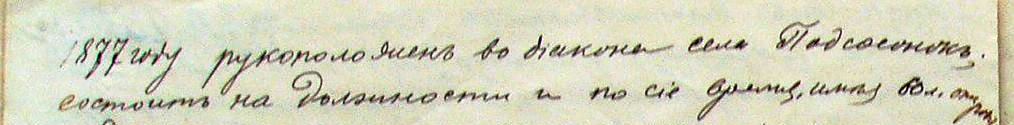 1877 году рукоположенъ во діакона села Подсосонокъ.
состоитъ на должности и по сіе время, имѣя 60 л. отъ роду